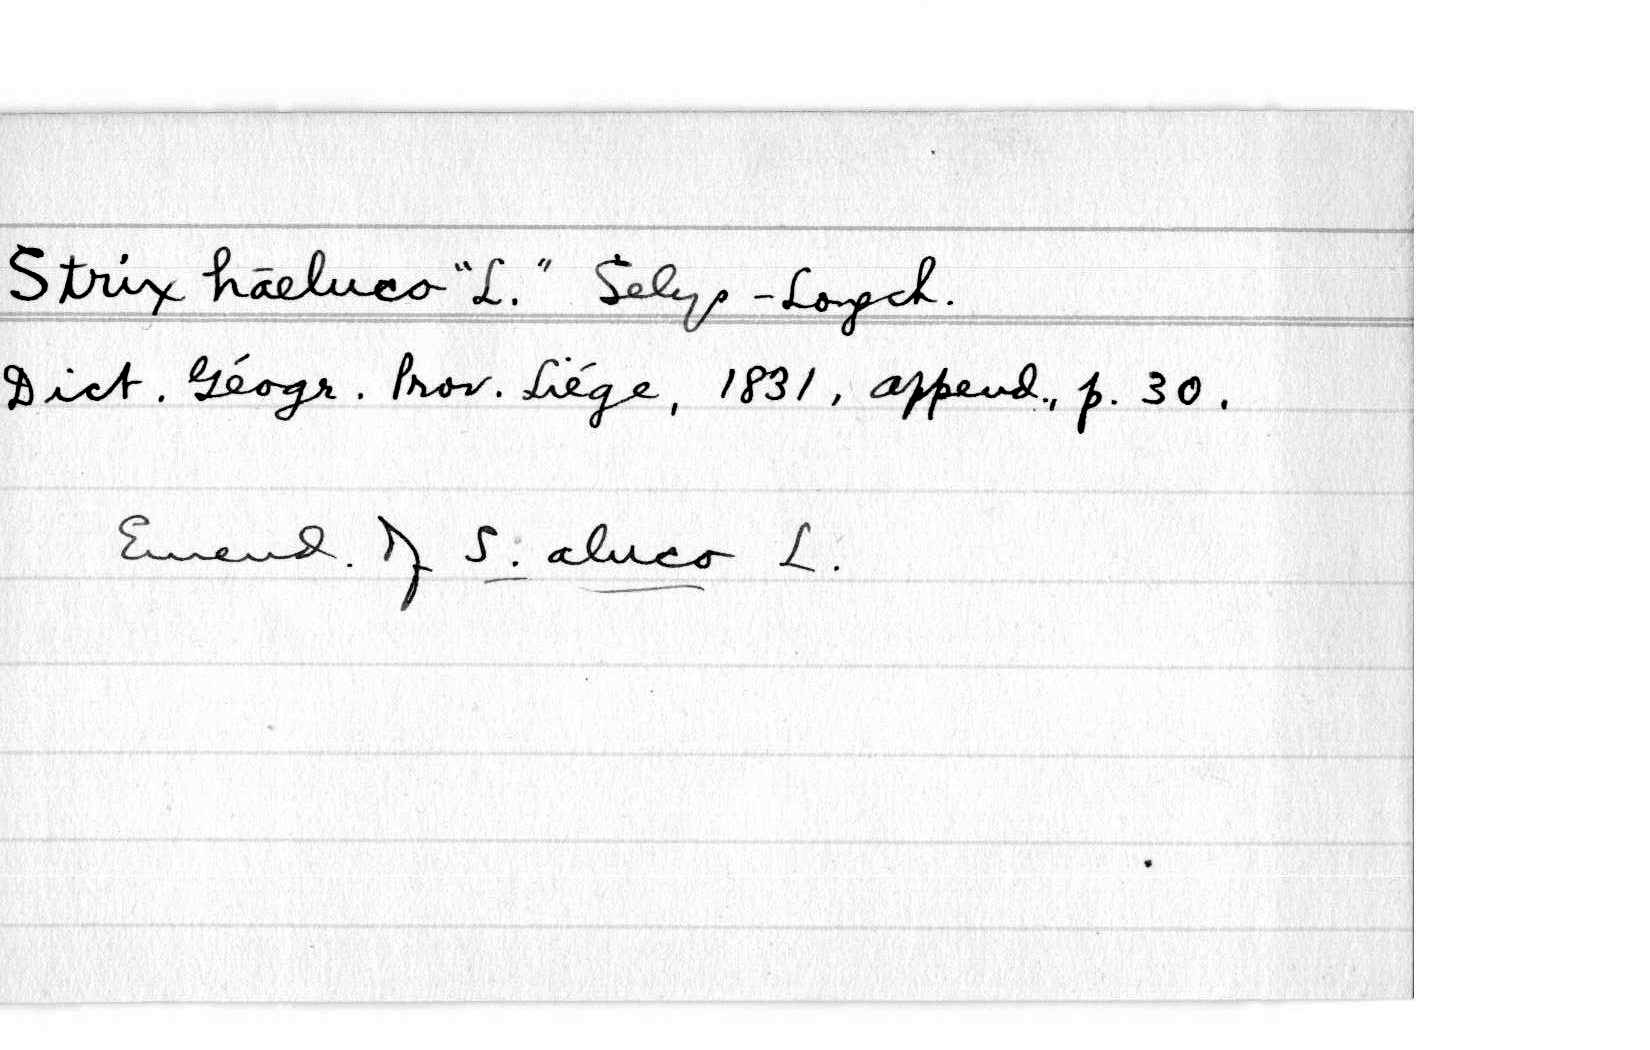 Strix hāeluco "L." Selys-Longch.
Dict. Géogr. Prov. Liége, 1831, append., p. 30.
Emend. of S. aluco L.